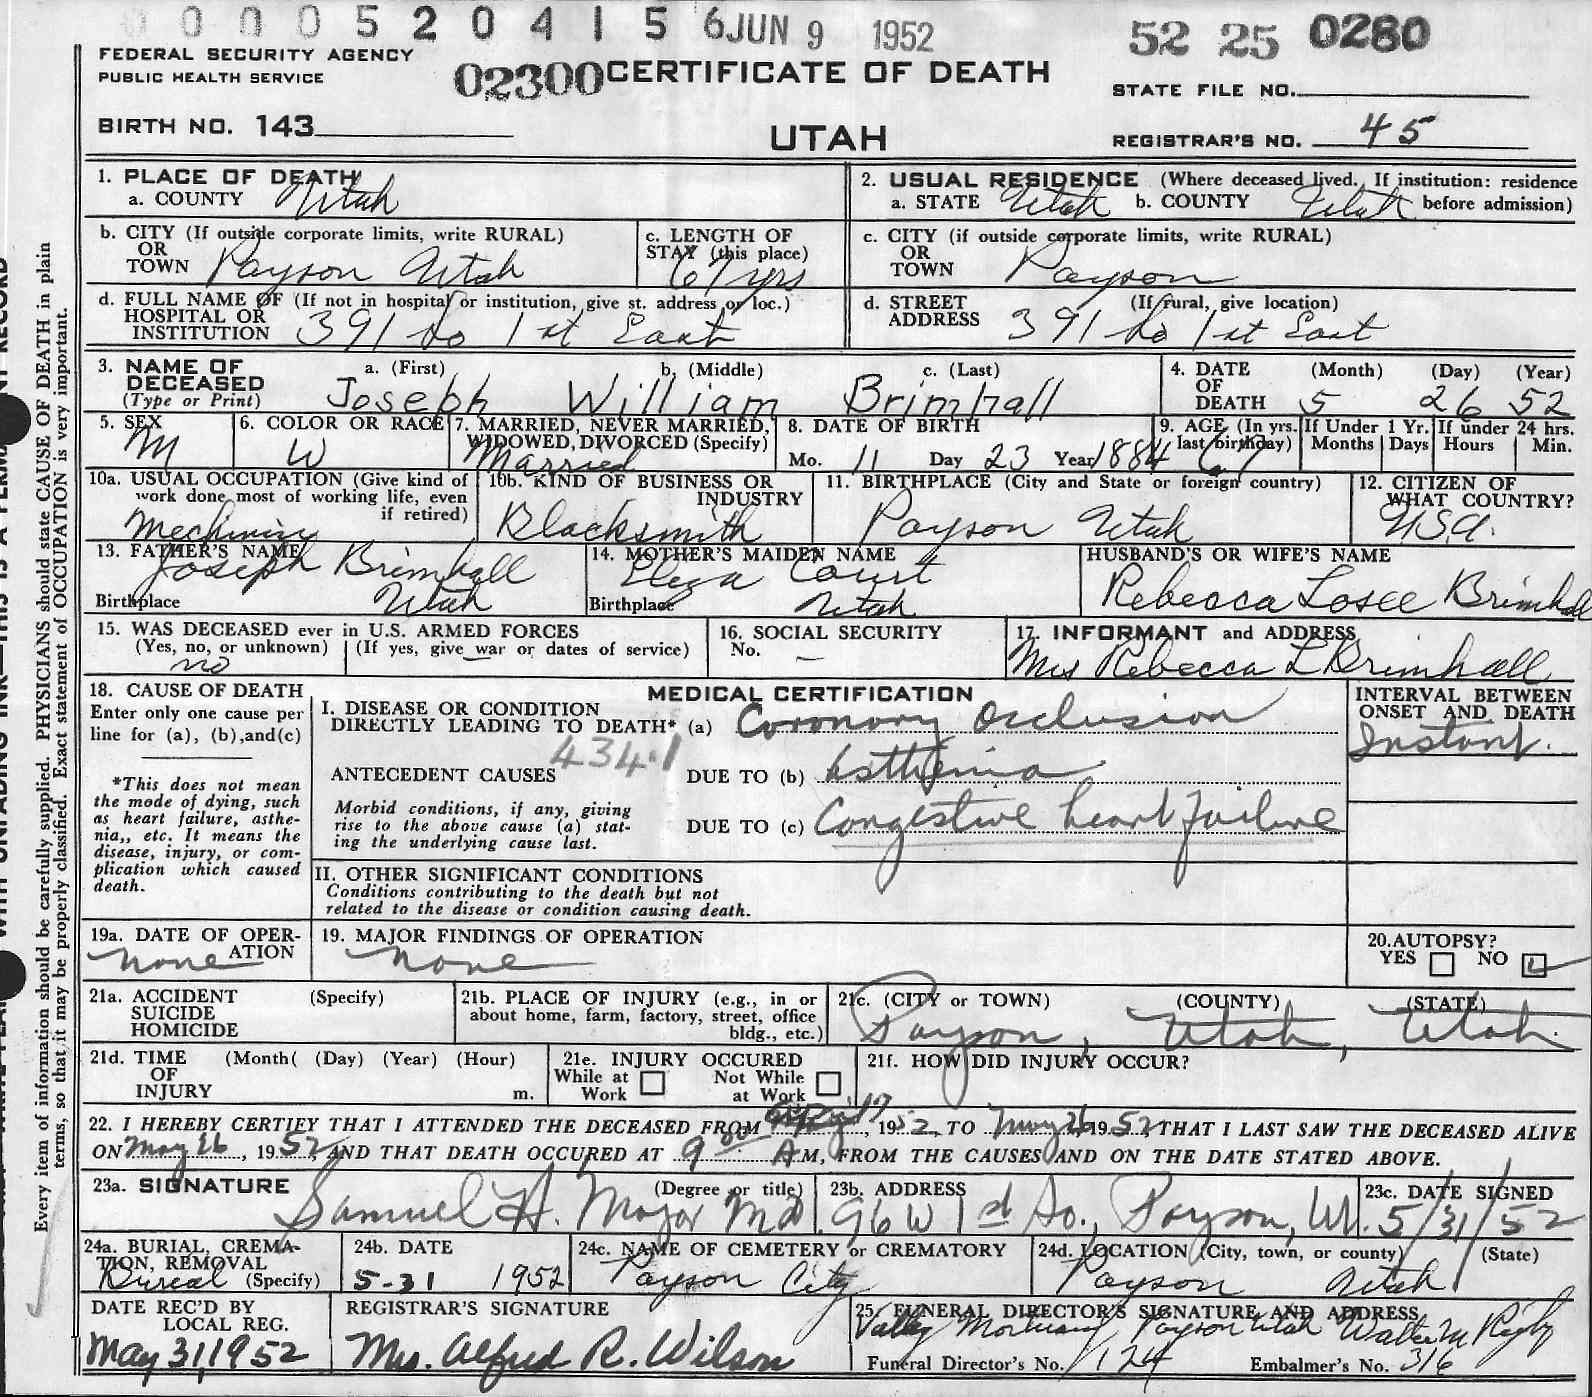 0 0 0 5 2 0 4 1 5 6 JUN 9 1952 52 25 0280
FEDERAL SECURITY AGENCY
PUBLIC HEALTH SERVICE
02300 CERTIFICATE OF DEATH
STATE FILE NO.
BIRTH NO. 143
UTAH
REGISTRAR'S NO. 45
1. PLACE OF DEATH
a. COUNTY Utah
2. USUAL RESIDENCE (Where deceased lived. If institution: residence
a. STATE Utah b. COUNTY Utah before admission)
b. CITY (If outside corporate limits, write RURAL)
OR
TOWN Payson Utah
c. LENGTH OF
STAY (this place)
67 yrs
c. CITY (if outside corporate limits, write RURAL)
OR
TOWN Payson
d. FULL NAME OF (If not in hospital or institution, give st. address or loc.)
HOSPITAL OR
INSTITUTION 391 So 1st East
d. STREET (If rural, give location)
ADDRESS 391 So 1st East
3. NAME OF
DECEASED
(Type or Print)
a. (First) b. (Middle) c. (Last)
Joseph William Brimhall
4. DATE (Month) (Day) (Year)
OF
DEATH 5 26 52
5. SEX
M
6. COLOR OR RACE
W
7. MARRIED, NEVER MARRIED,
WIDOWED, DIVORCED (Specify)
Married
8. DATE OF BIRTH
Mo. 11 Day 23 Year 1884
9. AGE (In yrs.
last birthday)
67
If Under 1 Yr.
Months Days
If under 24 hrs.
Hours Min.
10a. USUAL OCCUPATION (Give kind of
work done most of working life, even
if retired)
10b. KIND OF BUSINESS OR
INDUSTRY
Blacksmith
11. BIRTHPLACE (City and State or foreign country)
Payson Utah
12. CITIZEN OF
WHAT COUNTRY?
U.S.A.
13. FATHER'S NAME
Joseph Brimhall
Birthplace Utah
14. MOTHER'S MAIDEN NAME
Court
Birthplace Utah
HUSBAND'S OR WIFE'S NAME
Rebecca Losee Brimhall
15. WAS DECEASED ever in U.S. ARMED FORCES
(Yes, no, or unknown) (If yes, give war or dates of service)
no —
16. SOCIAL SECURITY
No. —
17. INFORMANT and ADDRESS
Mrs Rebecca L Brimhall
18. CAUSE OF DEATH
Enter only one cause per
line for (a), (b), and (c)
*This does not mean
the mode of dying, such
as heart failure, asthe-
nia,, etc. It means the
disease, injury, or com-
plication which caused
death.
MEDICAL CERTIFICATION
I. DISEASE OR CONDITION
DIRECTLY LEADING TO DEATH* (a) Coronary Occlusion
434.1
ANTECEDENT CAUSES DUE TO (b) Asthenia
Morbid conditions, if any, giving
rise to the above cause (a) stat-
ing the underlying cause last.
DUE TO (c) Congestive heart failure
II. OTHER SIGNIFICANT CONDITIONS
Conditions contributing to the death but not
related to the disease or condition causing death.
INTERVAL BETWEEN
ONSET AND DEATH
Instant.
19a. DATE OF OPER-
ATION
none
19. MAJOR FINDINGS OF OPERATION
none
20. AUTOPSY?
YES NO
21a. ACCIDENT (Specify)
SUICIDE
HOMICIDE
21b. PLACE OF INJURY (e.g., in or
about home, farm, factory, street, office
bldg., etc.)
21c. (CITY or TOWN) (COUNTY) (STATE)
Payson, Utah, Utah.
21d. TIME (Month( (Day) (Year) (Hour)
OF
INJURY m.
21e. INJURY OCCURED
While at Not While
Work at Work
21f. HOW DID INJURY OCCUR?
22. I HEREBY CERTIFY THAT I ATTENDED THE DECEASED FROM April 17, 1952 TO May 26 1952, THAT I LAST SAW THE DECEASED ALIVE
ON May 26, 1952, AND THAT DEATH OCCURED AT 9 00 A.M, FROM THE CAUSES AND ON THE DATE STATED ABOVE.
23a. SIGNATURE (Degree or title)
Samuel H. Major MD
23b. ADDRESS
96 W 1st So., Payson, Ut.
23c. DATE SIGNED
5/31/52
24a. BURIAL, CREMA-
TION, REMOVAL
Bureal (Specify)
24b. DATE
5-31 1952
24c. NAME OF CEMETERY or CREMATORY
Payson City
24d. LOCATION (City, town, or county) (State)
Payson Utah
DATE REC'D BY
LOCAL REG.
May 31, 1952
REGISTRAR'S SIGNATURE
Mrs. Alfred R. Wilson
25. FUNERAL DIRECTOR'S SIGNATURE AND ADDRESS
Valley Mortuary Payson Utah Walter M Rigby
Funeral Director's No. 124 Embalmer's No. 316
Every item of information should be carefully supplied. PHYSICIANS should state CAUSE OF DEATH in plain
terms, so that it may be properly classified. Exact statement of OCCUPATION is very important.